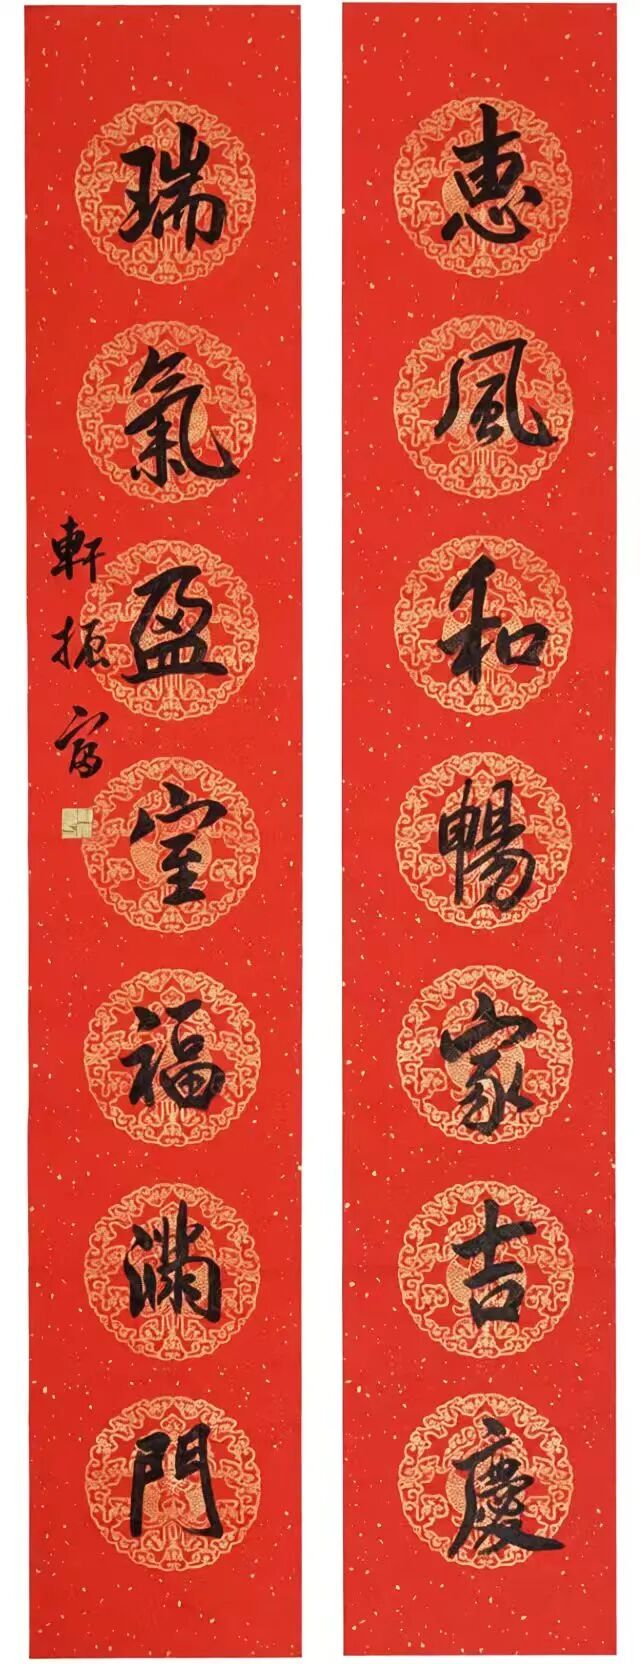 恵風和暢家吉慶
瑞氣盈室福滿門
軒振寫